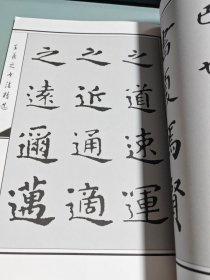 賢
之道速運
之近通適
之遠邇邁
王羲之书法精选